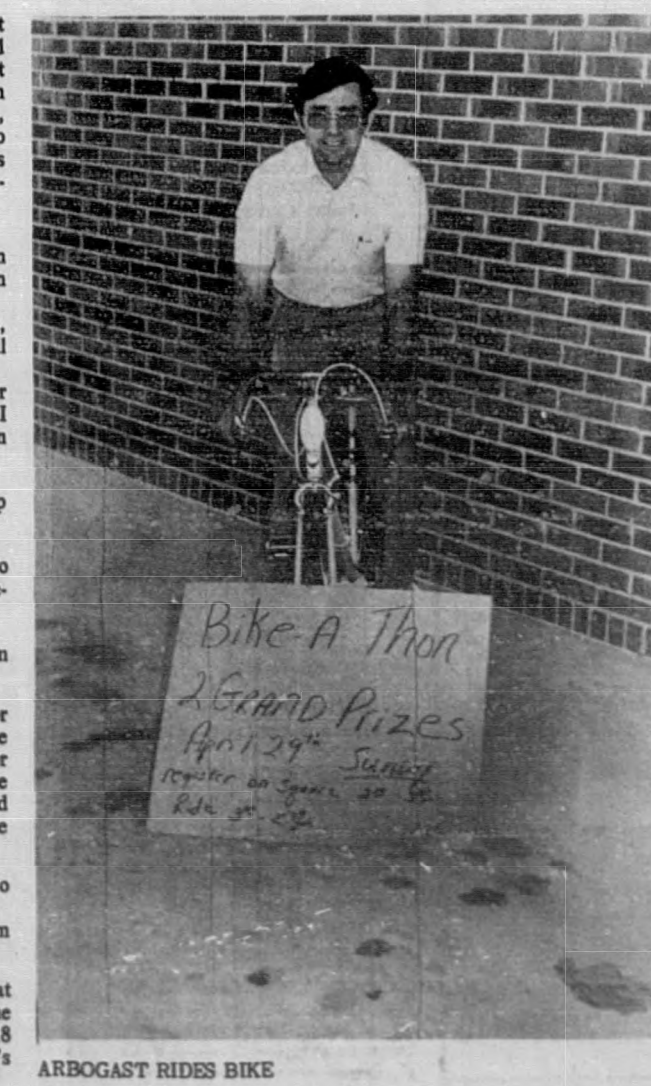 Bike-A Thon
2 GRAND Prizes
April 29th Sunday
register on Square
Ride
ARBOGAST RIDES BIKE